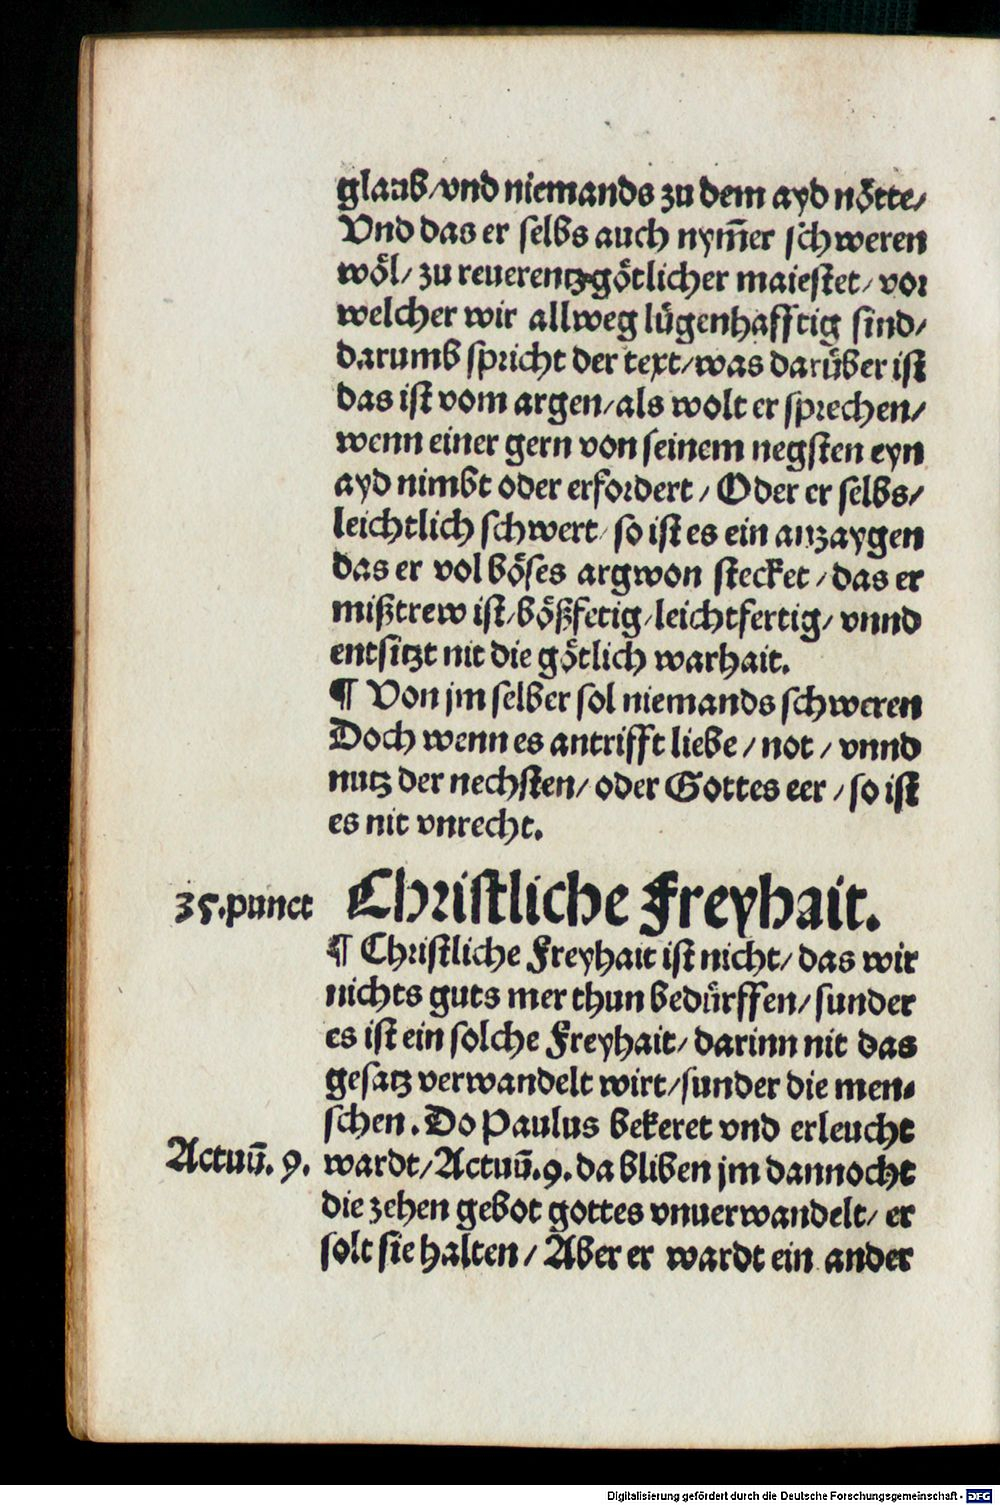 glaub/vnd niemands zu dem ayd nötte/
Vnd das er selbs auch nym̄er schweren
wöl/ zu reuerentz götlicher maiestet/ vor
welcher wir allweg lügenhafftig sind/
darumb spricht der text/was darüber ist
das ist vom argen/als wolt er sprechen/
wenn einer gern von seinem negsten eyn
ayd nimbt oder erfordert / Oder er selbs/
leichtlich schwert/ so ist es ein anzaygen
das er vol böses argwon stecket / das er
mißtrew ist/bößfetig/leichtfertig/ vnnd
entsitzt nit die götlich warhait.
¶ Von jm selber sol niemands schweren
Doch wenn es antrifft liebe / not / vnnd
nutz der nechsten/ oder Gottes eer / so ist
es nit vnrecht.
35.punct Christliche Freyhait.
¶ Christliche Freyhait ist nicht/ das wir
nichts guts mer thun bedürffen/ sunder
es ist ein solche Freyhait/ darinn nit das
gesatz verwandelt wirt/sunder die men-
schen. Do Paulus bekeret vnd erleucht
Actuū. 9. wardt/Actuū.9. da bliben jm dannocht
die zehen gebot gottes vnuerwandelt/ er
solt sie halten / Aber er wardt ein ander
Digitalisierung gefördert durch die Deutsche Forschungsgemeinschaft - DFG